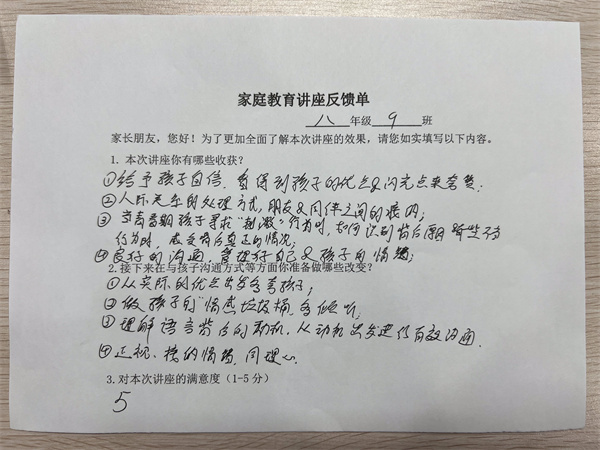 家庭教育讲座反馈单
八年级 9 班
家长朋友，您好！为了更加全面了解本次讲座的效果，请您如实填写以下内容。
1. 本次讲座你有哪些收获？
①给予孩子自信，看得到孩子的优点及闪光点来夸赞.
②人际关系的处理方式，朋友及同伴之间的接纳；
③当青春期孩子寻求"刺激"行为时，如何识别背后原因
行为时，感受背后真正的情况；
④良好的沟通，管理好自己及孩子的情绪；
2. 接下来在与孩子沟通方式等方面你准备做哪些改变？
①从实际的优点出发夸青孩子；
②做孩子的"情感垃圾桶"，多倾听；
③理解语言背后的动机，从动机出发进行有效沟通.
④正视、接纳情绪，同理心.
3. 对本次讲座的满意度（1-5 分）
5